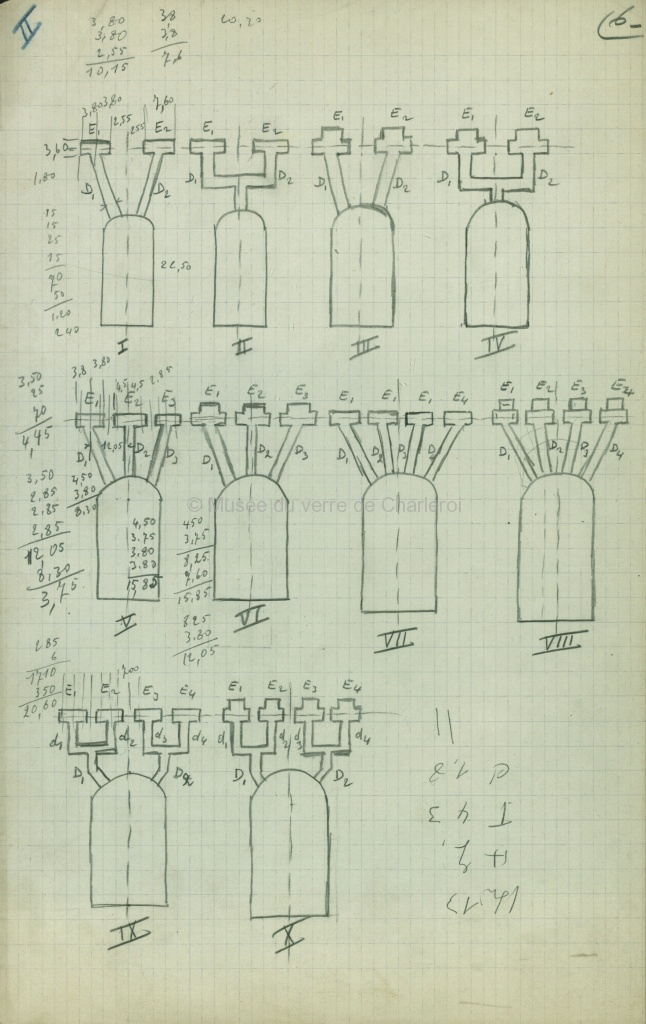 II
3,80
3,80
2,55
10,15
3,8
3,8
7,6
20,20
6
3,80 3,80 2,55 2,55 7,60
E1 E2 E1 E2 E1 E2 E1 E2
3,60
1,80
D1 D2 D1 D2 D1 D2 D1 D2
15
15
25
15
70
50
1.20
240
22,50
I II III IV
3,50
25
70
4,45
3,8 3,80 4,5 4,5 2,85
E1 E2 E3 E1 E2 E3 E1 E1 E1 E4 E1 E2 E3 E4
12,05
D1 D2 D3 D1 D2 D3 D1 D2 D3 D4 D1 D2 D3 D4
3,50
2,85
2,85
2,85
12,05
8,30
3,75
4,50
3,80
8,30
© Musée du verre de Charleroi
4,50
3.75
3,80
3.80
15,85
450
3,75
8,25
7,60
15,85
825
3.80
12,05
V VI VII VIII
285
6
1710
350
20,60
1,00
E1 E2 E3 E4 E1 E2 E3 E4
d1 d2 d3 d4 d1 d2 d3 d4
D1 D2 D1 D2
IX X